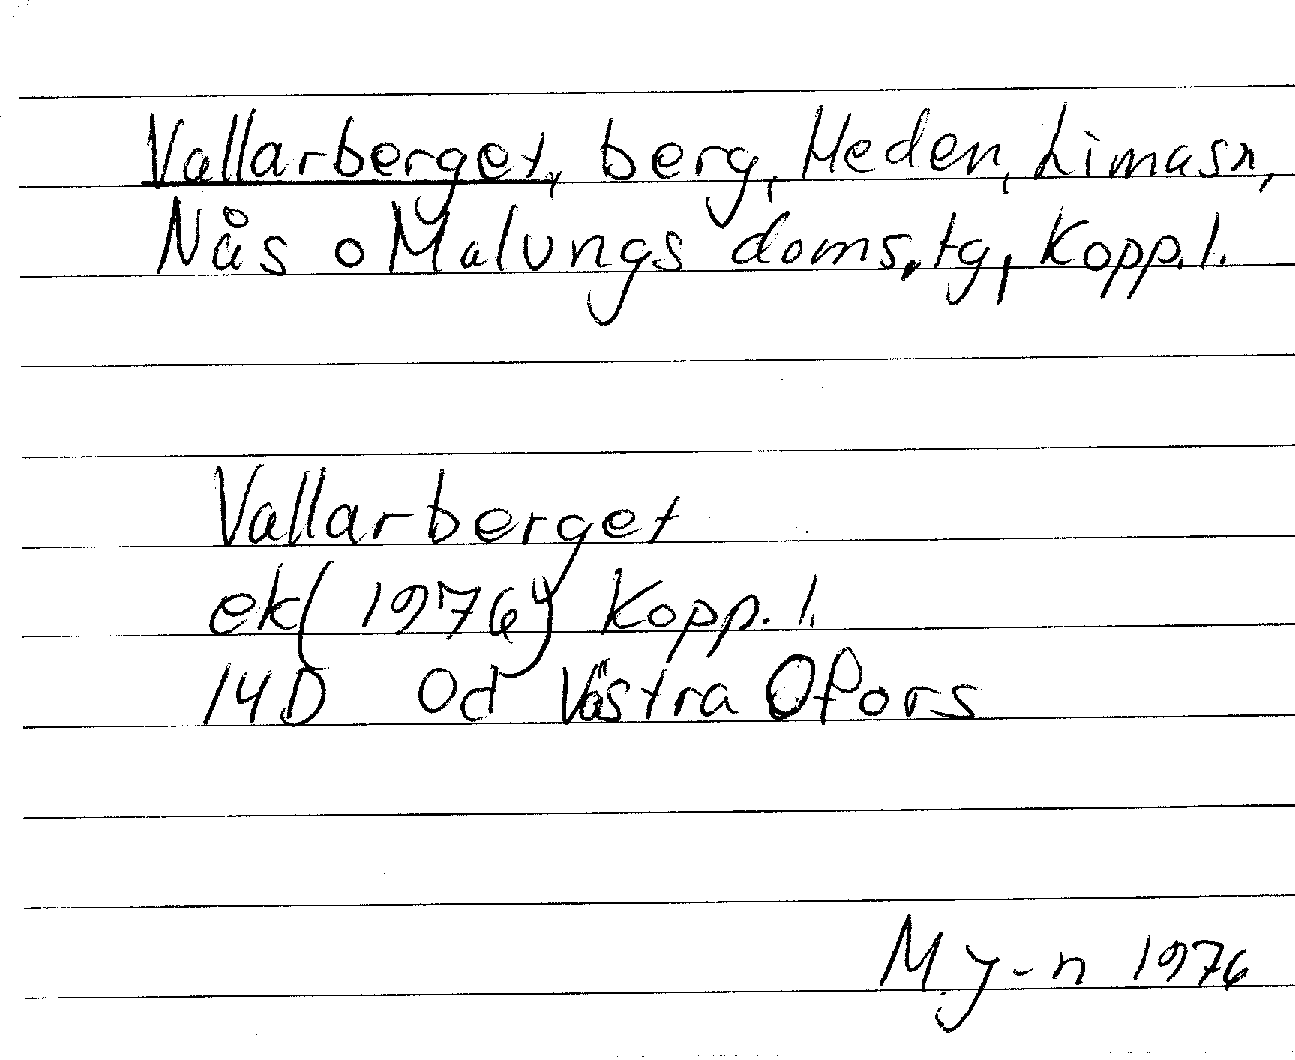 Vallarberget, berg, Heden, Lima sn,
Nås o Malungs doms.tg, Kopp.l.
Vallarberget
ek (1976) Kopp.l.
14D 0d Västra Ofors
M y-n 1976